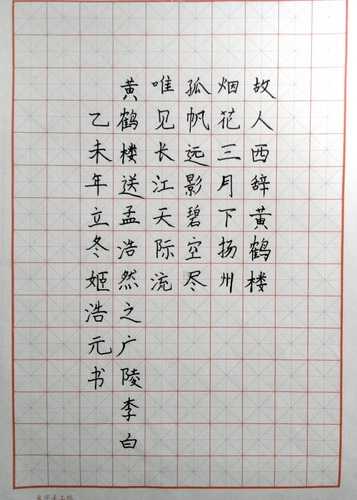 故人西辞黄鹤楼
烟花三月下扬州
孤帆远影碧空尽
唯见长江天际流
黄鹤楼送孟浩然之广陵李白
乙未年立冬姬浩元书